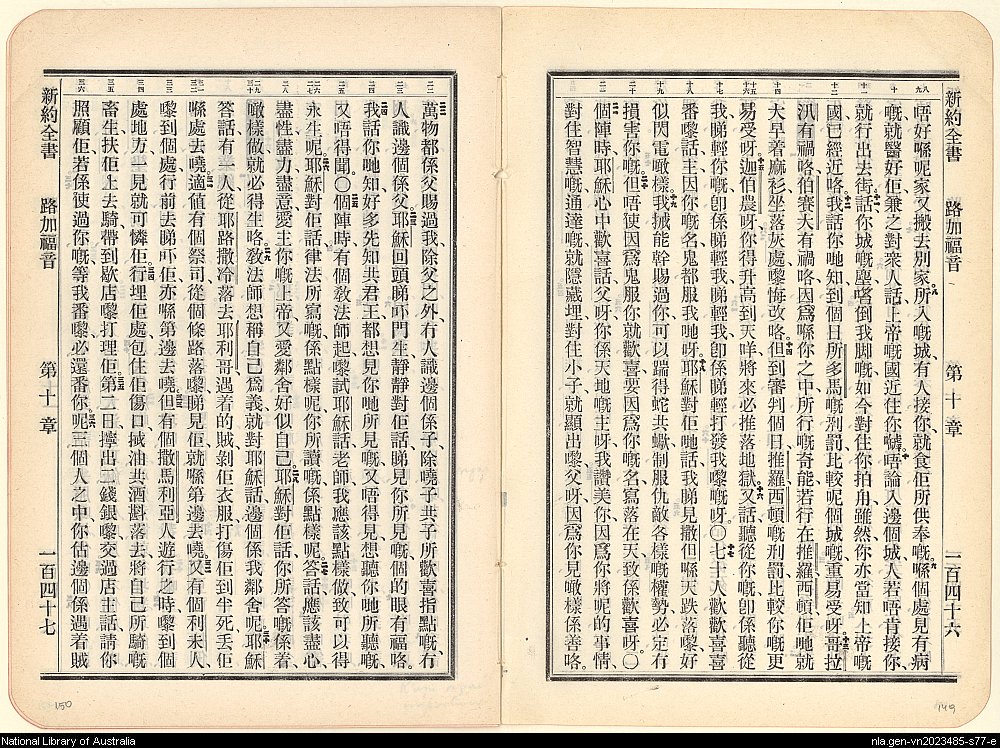 新約全書 路加福音 第十章 一百四十六
唔好喺呢家又搬去別家、所入嘅城、有人接你、就食佢所供奉嘅、喺個處見有病
嘅、就醫好佢、兼之對衆人話、上帝嘅國近住你、唔論入邊個城、人若唔肯接你、
就行出去街、話、你城嘅塵、倒我脚嘅、如今對住你拍甪、雖然你亦當知上帝嘅
國已經近咯、我話你哋知、到個日、所多馬嘅刑罰、比較呢個城嘅、重易受呀、哥拉
汛有禍咯、伯賽大有禍咯、因爲喺你之中所行嘅奇能、若行在推羅西頓、佢哋就
大早着麻衫、坐落灰處嚟悔改咯、但到審判個日、推羅西頓嘅刑罰、比較你嘅更
易受呀、迦伯農呀、你得升高到天咩、將來必推落地獄、又話、聽從你嘅、卽係聽從
我、睇輕你嘅、卽係睇輕我、睇輕我、卽係睇輕打發我嚟嘅呀。〇七十人歡歡喜喜
番嚟話、主因你嘅名、鬼都服我哋呀、耶穌對佢哋話、我睇見撒但喺天跌落嚟、好
似閃電噉樣、我𢬿能幹賜過你、可以踹得蛇共蠍、制服仇敵各樣嘅權勢、必定有
損害你嘅、但唔使因爲鬼服你、就歡喜、要因爲你嘅名寫落在天、致係歡喜呀。〇
個陣時、耶穌心中歡喜話、父呀、你係天地嘅主呀、我讚美你、因爲你將呢的事情、
對住智慧嘅通達嘅、就隱藏埋、對住小子、就顯出嚟、父呀、因爲你見噉樣係善咯。
新約全書 路加福音 第十章 一百四十七
萬物都係父賜過我、除父之外、有人識邊個係子、除曉子共子所歡喜指點嘅、有
人識邊個係父、耶穌回頭睇吓門生、靜靜對佢話、睇見你所見嘅、個的眼有福咯。
我話你哋知、好多先知共君王、都想見你哋所見嘅、又唔得見、想聽你哋所聽嘅、
又唔得聞。〇個陣時、有個敎法師起嚟、試耶穌話、老師、我應該點樣做、致可以得
永生呢、耶穌對佢話、律法所寫嘅係點樣呢、你所讀嘅係點樣呢、答話、應該盡心
盡性盡力盡意、愛主你嘅上帝、又愛鄰舍好似自己、耶穌對佢話、你所答嘅係着
噉樣做、就必得生咯、敎法師想稱自己爲義、就對耶穌話、邊個係我鄰舍呢、耶穌
答話、有一人從耶路撒冷落去耶利哥、遇着的賊、剝佢衣服、打傷佢到半死、丟佢
喺處去曉、適值有個祭司、從個條路落嚟、睇見佢、就喺第邊去曉、又有個利未人
嚟到個處、行前去睇吓佢、亦喺第邊去曉、但有個撒馬利亞人、遊行之時、嚟到個
處地方、一見就可憐佢、行埋佢處、包住佢傷口、𢬿油共酒斟落去、將自己所騎嘅
畜生、扶佢上去騎、帶到歇店嚟、打理佢、第二日擰出二錢銀嚟、交過店主話、請你
照顧佢、若係使過你嘅、等我番嚟、必還番你呢、三個人之中、你估邊個係遇着賊
150
149
National Library of Australia
nla.gen-vn2023485-s77-e